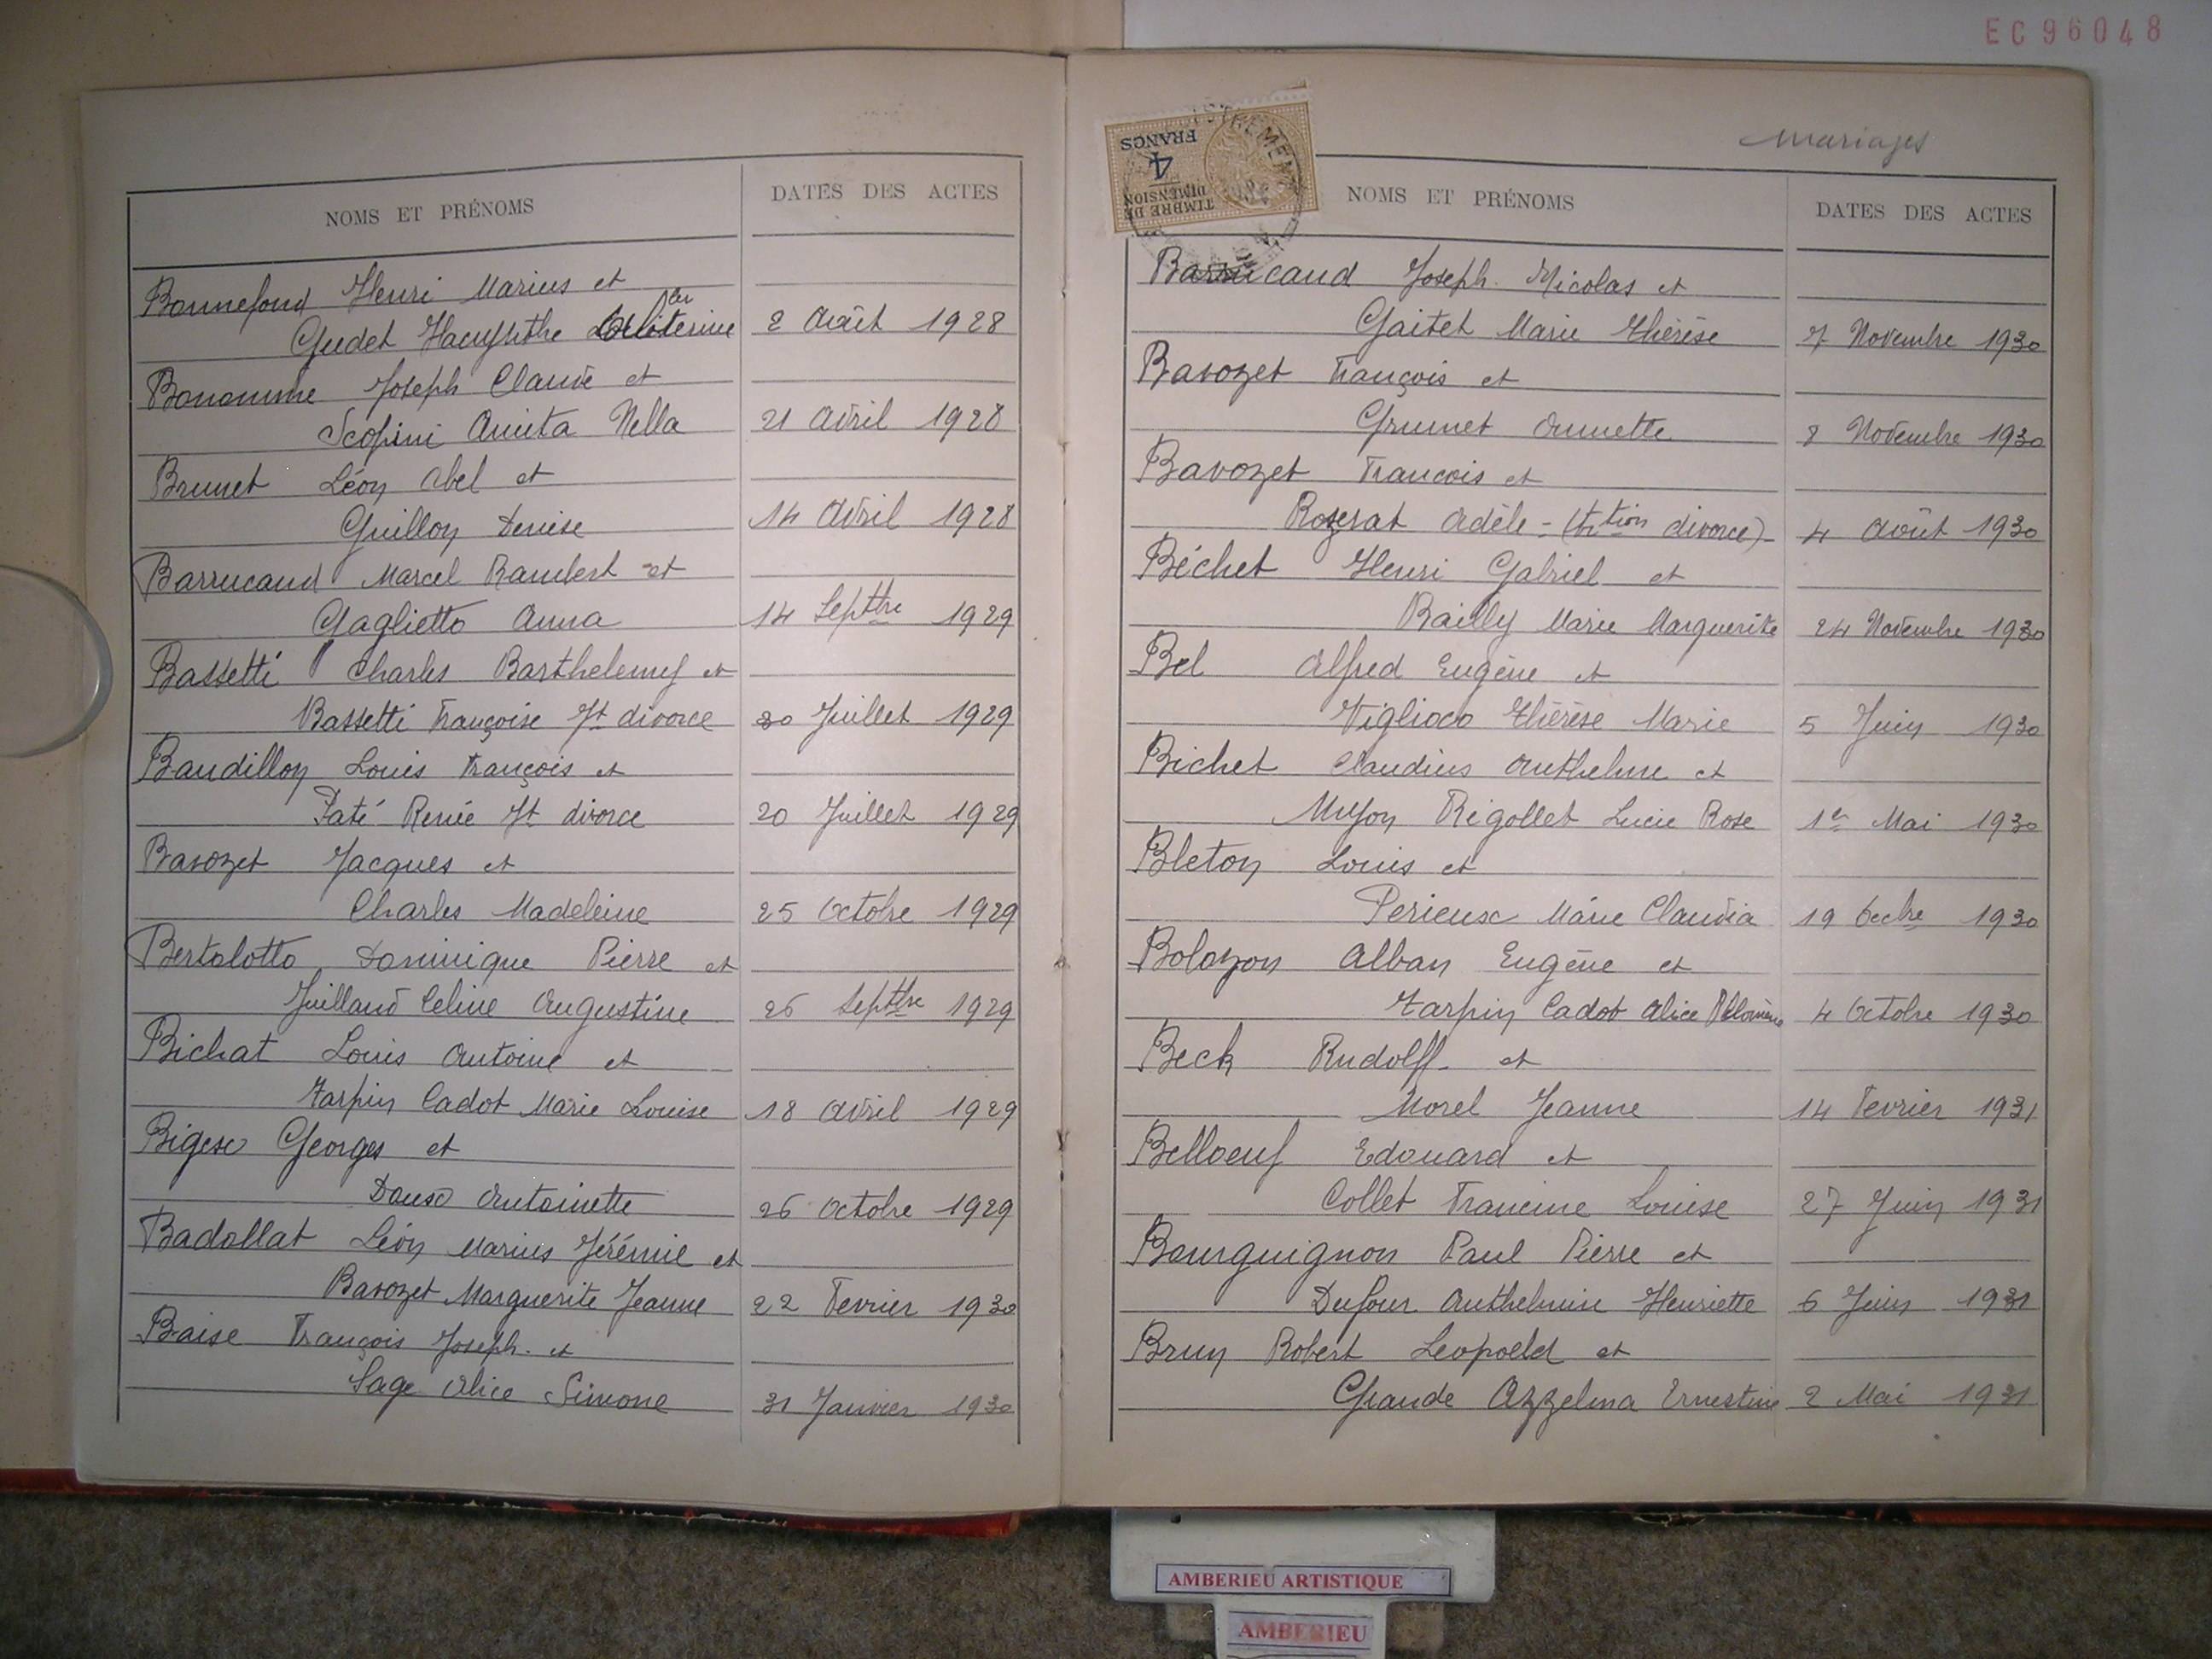 EC96048
NOMS ET PRÉNOMS DATES DES ACTES
Bonnefond Henri Marius et
Gudet Hacynthe 2 Août 1928
Bonomme Joseph Claude et
Scopini Anita Nella 21 Avril 1928
Brunet Léon Abel et
Guillon Denise 14 Avril 1928
Barrucand Marcel Rambert et
Gaglietto Anna 14 Septbre 1929
Bassetti Charles Barthelemy et
Bassetti Françoise Jt divorce 20 Juillet 1929
Baudillon Louis François et
Paté Renée Jt divorce 20 Juillet 1929
Bavozet Jacques et
Charles Madeleine 25 Octobre 1929
Bertolotto Dominique Pierre et
Juilland Celine Augustine 26 Septbre 1929
Bichat Louis Antoine et
Tarpin Cadot Marie Louise 18 Avril 1929
Bigex Georges et
Antoinette 26 Octobre 1929
Badollat Léon Marius Jérémie et
Bavozet Marguerite Jeanne 22 Fevrier 1930
Baise François Joseph. et
Sage Alice Simone 31 Janvier 1930
Mariages
TIMBRE DE DIMENSION
4 FRANCS
NOMS ET PRÉNOMS DATES DES ACTES
Barrucand Joseph Nicolas et
Gaitet Marie Thérèse 7 Novembre 1930
Bavozet François et
Grumet Annette 8 Novembre 1930
Bavozet Francois et
Rozerat Adèle - (trtion divorce) 4 Août 1930
Béchet Henri Gabriel et
Bailly Marie Marguerite 24 Novembre 1930
Bel Alfred Eugène et
Viglioco Thérèse Marie 5 Juin 1930
Bichet Claudius Anthelme et
Rigollet Lucie Rose 1er Mai 1930
Bleton Louis et
Perieux Marie Claudia 19 1930
Bolozon Alban Eugène et
Tarpin Cadot Alice 4 Octobre 1930
Beck Rudolff et
Morel Jeanne 14 Fevrier 1931
Belloeuf Edouard et
Collet Francine Louise 27 Juin 1931
Bourguignon Paul Pierre et
Dufour Anthelmine Henriette 6 Juin 1931
Brun Robert Leopold et
Grande Azzelma Ernestine 2 Mai 1931
AMBERIEU ARTISTIQUE
AMBERIEU